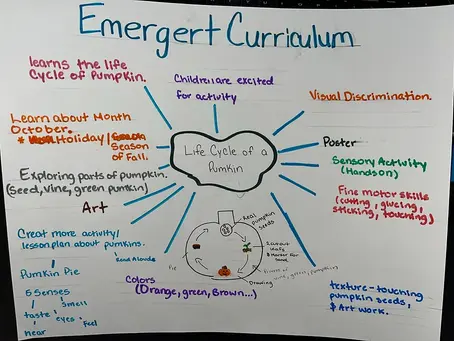 Emergert Curriculum
learns the life
Cycle of Pumpkin.
Children are excited
for activity
Visual Discrimination.
Learn about Month
October.
* Holiday/
Season
of Fall.
Life Cycle of a
Pumkin
Poster
Sensory Activity
(Handson)
Exploring parts of pumpkin.
(Seed, Vine, green pumkin)
Fine motor skills
(cutting, glueing,
sticking, touching)
Art
Creat more activity/
lesson plan about pumkins.
Read Alouds
Pumkin Pie
5 Senses
Smell
taste
eyes
Feel
hear
Real
pumpkin
Seeds
Pie
Drawing
Colors
(Orange, green, Brown...)
texture-touching
pumpkin seeds,
& Art work.